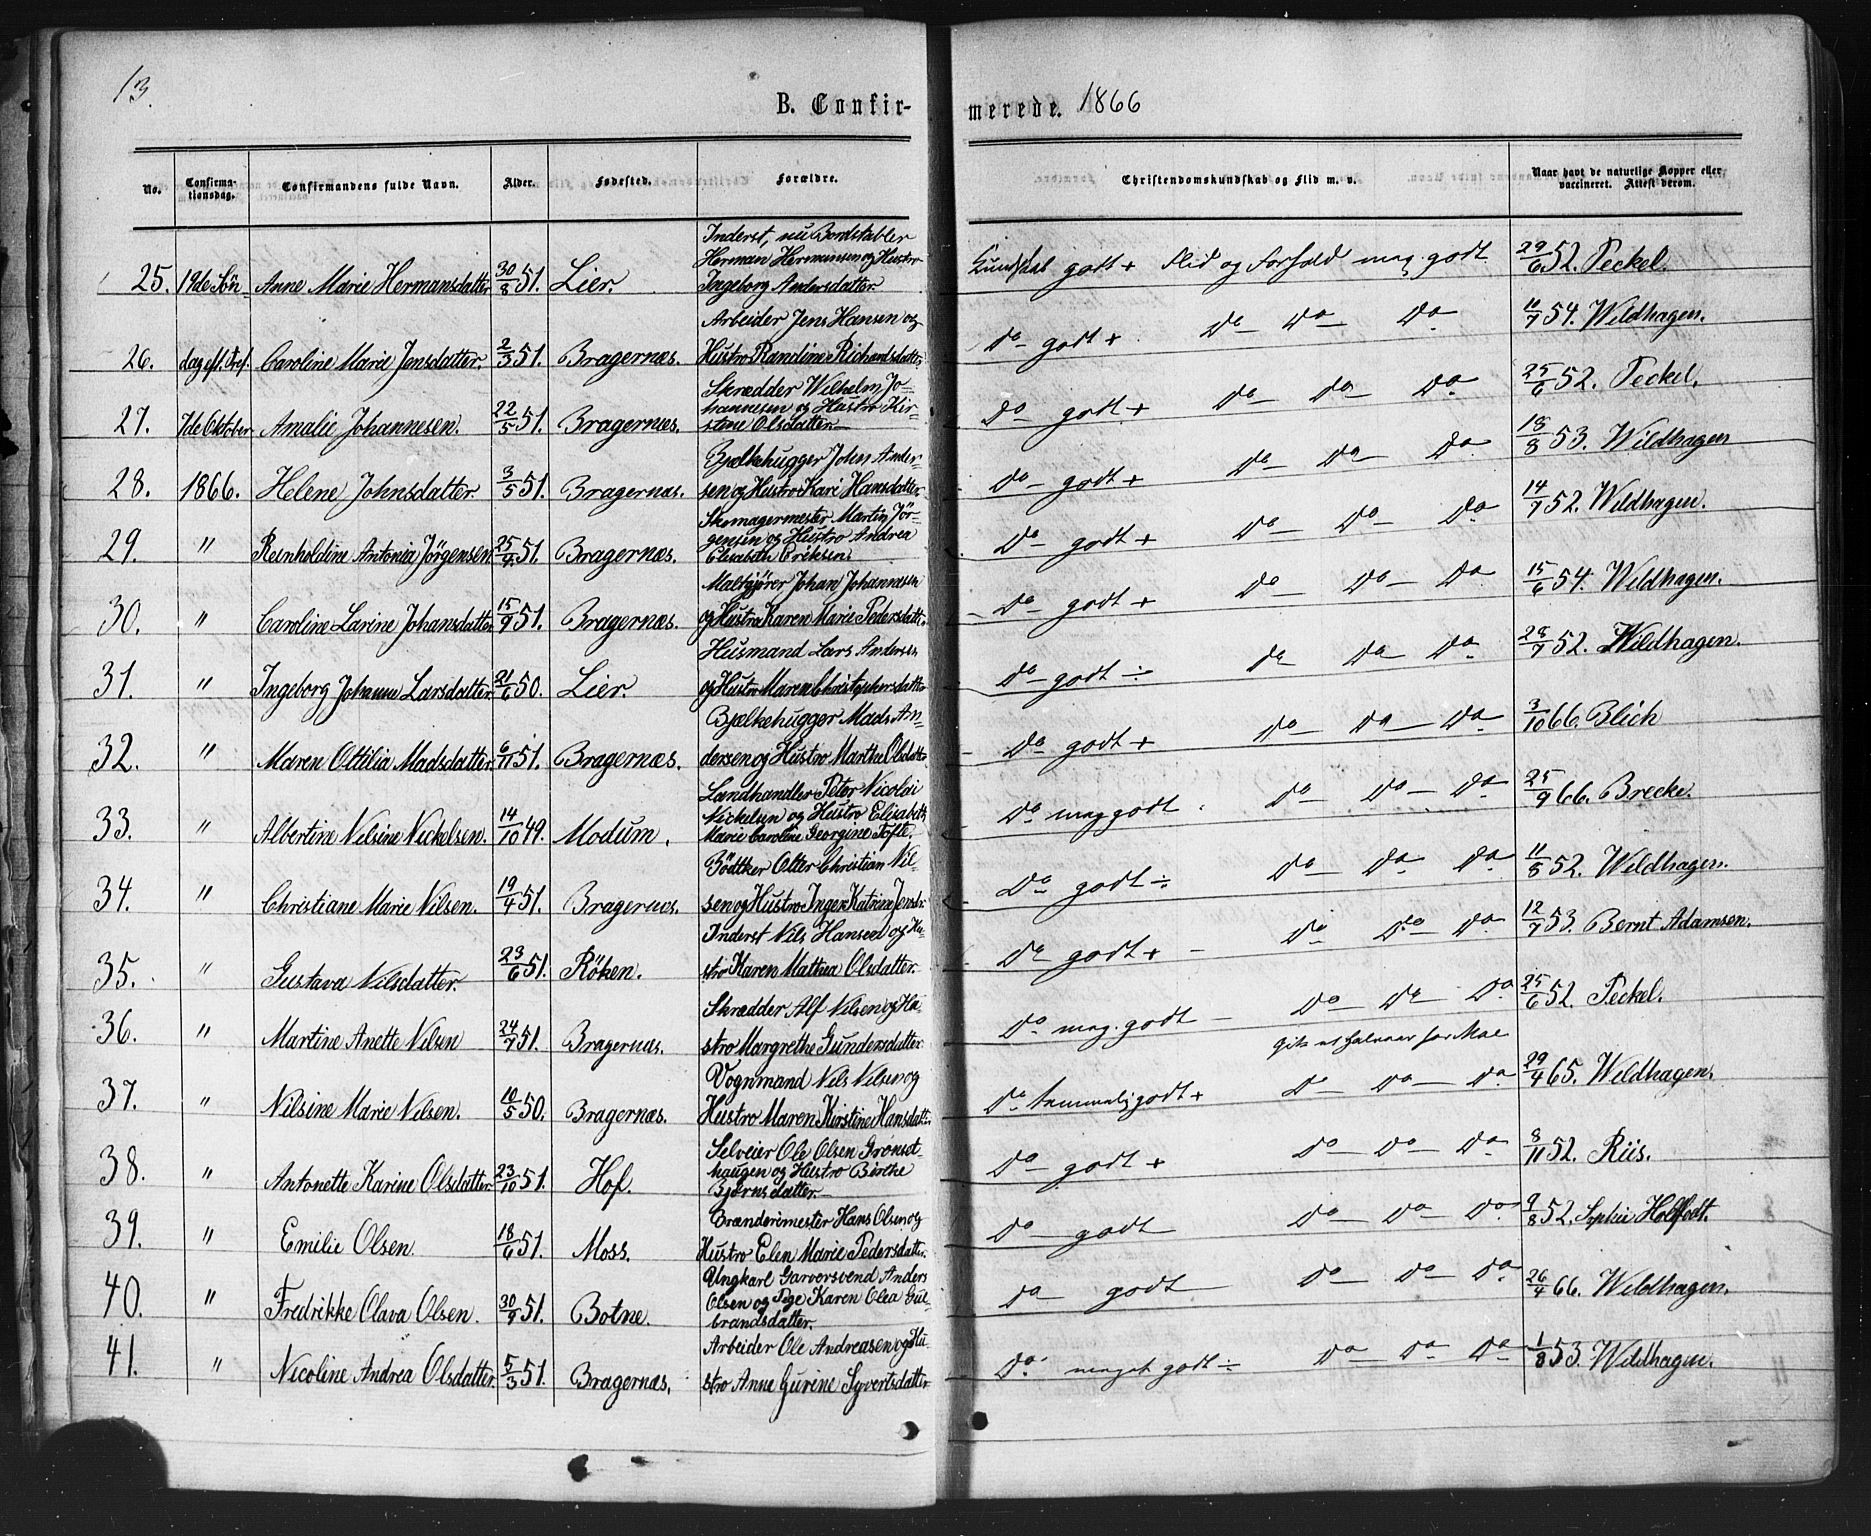 13.
B. Confirmerede. 1866
No. Confirmationsdag. Confirmandens fulde Navn. Alder. Fødested. Forældre. Christendomskundskab og Flid m. v. Naar havt de naturlige Kopper eller vaccineret. Attest derom.
25. 19de Søn- Anne Marie Hermansdatter 30/8 51. Lier. Inderst, nu Bordstabler
Herman Hermansen og Hustro
Ingeborg Andersdatter. Kundskab godt + Flid og Forhold meg. godt 29/6 52. Peckel.
26. dag eft. Tref. Caroline Marie Jensdatter. 2/3 51. Bragernæs. Arbeider Jens Hansen og
Hustro Randine Richardsdatter. Do godt + Do Do Do 11/7 54. Wildhagen.
27. 7de Oktober Amalie Johannesen. 22/5 51. Bragernæs. Skrædder Wilhelm Jo-
hannesen og Hustro Kir-
stine Olsdatter. Do godt + Do Do Do 25/6 52. Peckel.
28. 1866. Helene Johnsdatter 3/5 51. Bragernæs. Bjælkehugger John Ander-
sen og Hustro Kari Hansdatter. Do godt + Do Do Do 18/8 53. Wildhagen
29. " Reinholdine Antonia Jørgensen 25/4 51. Bragernæs. Skomagermester Martin Jör-
gensen og Hustro Andrea
Elisabeth Eriksen. Do godt + Do Do Do 14/7 52. Wildhagen.
30. " Caroline Larine Johansdatter 15/9 51. Bragernæs. Maltgjører Johan Johannesen
og Hustro Karen Marie Pedersdatt. Do godt + Do Do Do 15/6 54. Wildhagen.
31. " Ingeborg Johanne Larsdatter 21/6 50. Lier. Husmand Lars Andersen
og Hustro Maren Christophersdatter Do godt ÷ Do Do Do 28/7 52. Wildhagen.
32. " Maren Ottilia Madsdatter 6/11 51. Bragernæs. Bjælkehugger Mads An-
dersen og Hustro Marthe Olsdatter Do godt + Do Do Do 3/10 66. Blich
33. " Albertine Nilsine Nickelsen. 14/10 49. Modum. Landhandler Peter Nicolai
Nickelsen og Hustro Elisabeth
Marie Caroline Georgine Tofte. Do meg godt Do Do Do 25/9 66. Brecke.
34. " Christiane Marie Nilsen. 19/4 51. Bragernæs. Bödtker Otter Christian Nil-
sen og Hustro Inger Katrine Jensdr. Do godt ÷ Do Do Do 11/8 52. Wildhagen.
35. " Gustava Nilsdatter. 23/6 51. Röken. Inderst Nils Hansen og Hu-
stro Karen Mathea Olsdatter. Do godt + Do Do Do 12/7 53. Bernt Adamsen.
36. " Martine Anette Nilsen 24/7 51. Bragernæs. Skrædder Alf Nilsen og Hu-
stro Margrethe Gundersdatter Do meg. godt Do Do Do 25/6 52. Peckel.
37. " Nilsine Marie Nilsen. 10/5 50. Bragernæs. Vognmand Nils Nilsen og
Hustro Maren Kirstine Hansdatt. Do temmelig godt + Do Do Do 29/4 65. Wildhagen.
38. " Antonette Karine Olsdatter 23/10 51. Hof. Selveier Ole Olsen Grönset-
haugen og Hustro Birthe
Bjørnsdatter. Do godt + Do Do Do 8/11 52. Riis.
39. " Emilie Olsen. 18/6 51. Moss. Brænderimester Hans Olsen og
Hustro Elen Marie Pedersdatter. Do godt Do Do Do 9/8 52. Sophie Holfeldt.
40. " Fredrikke Olava Olsen. 30/9 51. Botne. Ungkarl Garversvend Anders
Olsen og Pige Karen Olea Gul-
brandsdatter. Do godt Do Do Do 26/4 66. Wildhagen.
41. " Nicoline Andrea Olsdatter. 5/3 51. Bragernæs. Arbeider Ole Andreasen og Hu-
stro Anne Gurine Syvertsdatter Do meget godt ÷ Do Do Do 1/8 53. Wildhagen.